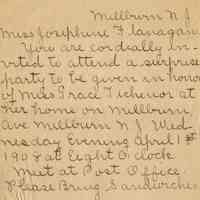 Millburn N J
Miss Josephine Flanagan
You are cordially in-
vited to attend a surprise
party to be given in honor
of Miss Grace Tichenor at
her home on Millburn
Ave Millburn N J. Wed-
nesday Evening April 1st
1908 at Eight O clock
Meet at Post Office.
Please Bring Sandwiches